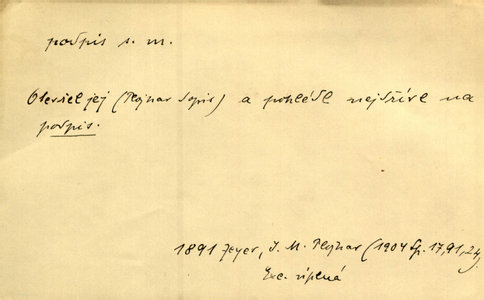 podpis s. m.
Otevřel jej (Plojhar dopis) a pohlédl nejdříve na
podpis.
1891 Zeyer, J. M. Plojhar (1904 Sp. 17, 91, 24)
Exc. úplná